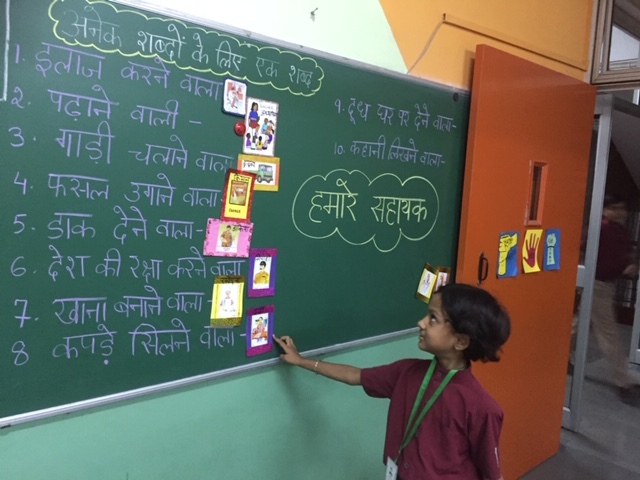 अनेक शब्दों के लिए एक शब्द
1. इलाज करने वाला
2. पढ़ाने वाली -
3. गाड़ी चलाने वाला
4. फसल उगाने वाला
5. डाक देने वाला -
6. देश की रक्षा करने वाला
7. खाना बनाने वाला -
8 कपड़े सिलने वाला -
९. दूध घर पर देने वाला -
10. कहानी लिखने वाला -
हमारे सहायक